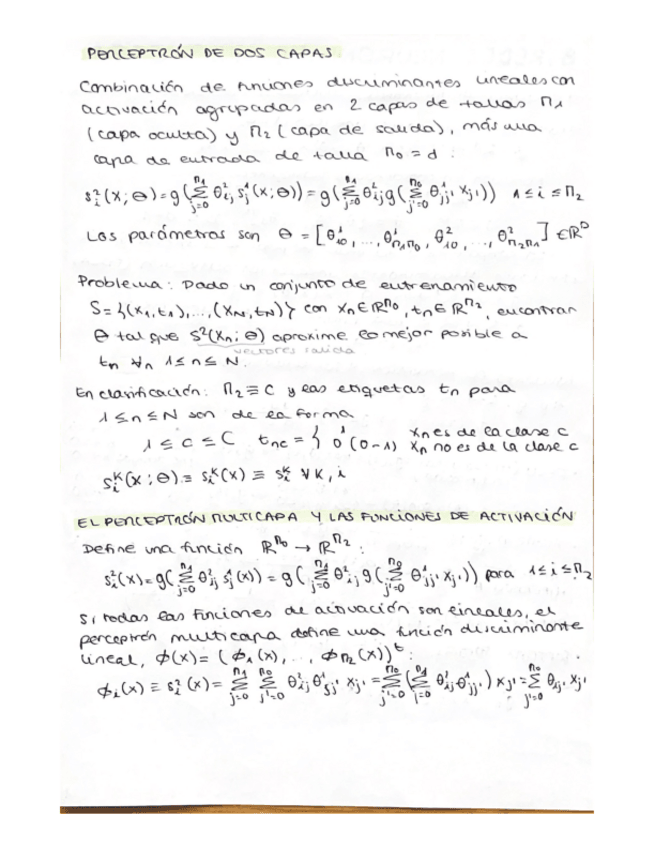 PERCEPTRÓN DE DOS CAPAS
Combinación de funciones discriminantes lineales con
activación agrupadas en 2 capas de tallas M₁
(capa oculta) y M₂ (capa de salida), más una
capa de entrada de talla M₀ = d :
sᵢ²(x; Θ) = g(∑_{j=0}^{M₁} θ²ᵢⱼ sⱼ¹(x; Θ)) = g(∑_{j=0}^{M₁} θ²ᵢⱼ g(∑_{j'=0}^{M₀} θ¹ⱼⱼ' xⱼ')) 1 ≤ i ≤ M₂
Los parámetros son Θ = [θ¹₁₀, ..., θ¹_{M₁M₀}, θ²₁₀, ..., θ²_{M₂M₁}] ∈ ℝᴰ
Problema: Dado un conjunto de entrenamiento
S = {(x₁, t₁), ..., (x_N, t_N)} con xₙ ∈ ℝ^{M₀}, tₙ ∈ ℝ^{M₂}, encontrar
Θ tal que s²(xₙ; Θ) aproxime lo mejor posible a
vectores salida
tₙ ∀n 1 ≤ n ≤ N.
En clasificación: M₂ ≡ C y las etiquetas tₙ para
1 ≤ n ≤ N son de la forma
1 ≤ c ≤ C tₙc = { 1 xₙ es de la clase c
0 (0-1) xₙ no es de la clase c
sᵢᵏ(x; Θ) ≡ sᵢᵏ(x) ≡ sᵢᵏ ∀k, i
EL PERCEPTRÓN MULTICAPA Y LAS FUNCIONES DE ACTIVACIÓN
Define una función ℝ^{M₀} → ℝ^{M₂} :
sᵢ²(x) = g(∑_{j=0}^{M₁} θ²ᵢⱼ sⱼ¹(x)) = g(∑_{j=0}^{M₁} θ²ᵢⱼ g(∑_{j'=0}^{M₀} θ¹ⱼⱼ' xⱼ')) para 1 ≤ i ≤ M₂
Si todas las funciones de activación son lineales, el
perceptrón multicapa define una función discriminante
lineal, ϕ(x) = (ϕ₁(x), ..., ϕ_{M₂}(x))ᵗ :
ϕᵢ(x) ≡ sᵢ²(x) = ∑_{j=0}^{M₁} ∑_{j'=0}^{M₀} θ²ᵢⱼ θ¹ⱼⱼ' xⱼ' = ∑_{j'=0}^{M₀} (∑_{j=0}^{M₁} θ²ᵢⱼ θ¹ⱼⱼ') xⱼ' = ∑_{j'=0}^{M₀} θᵢⱼ' xⱼ'